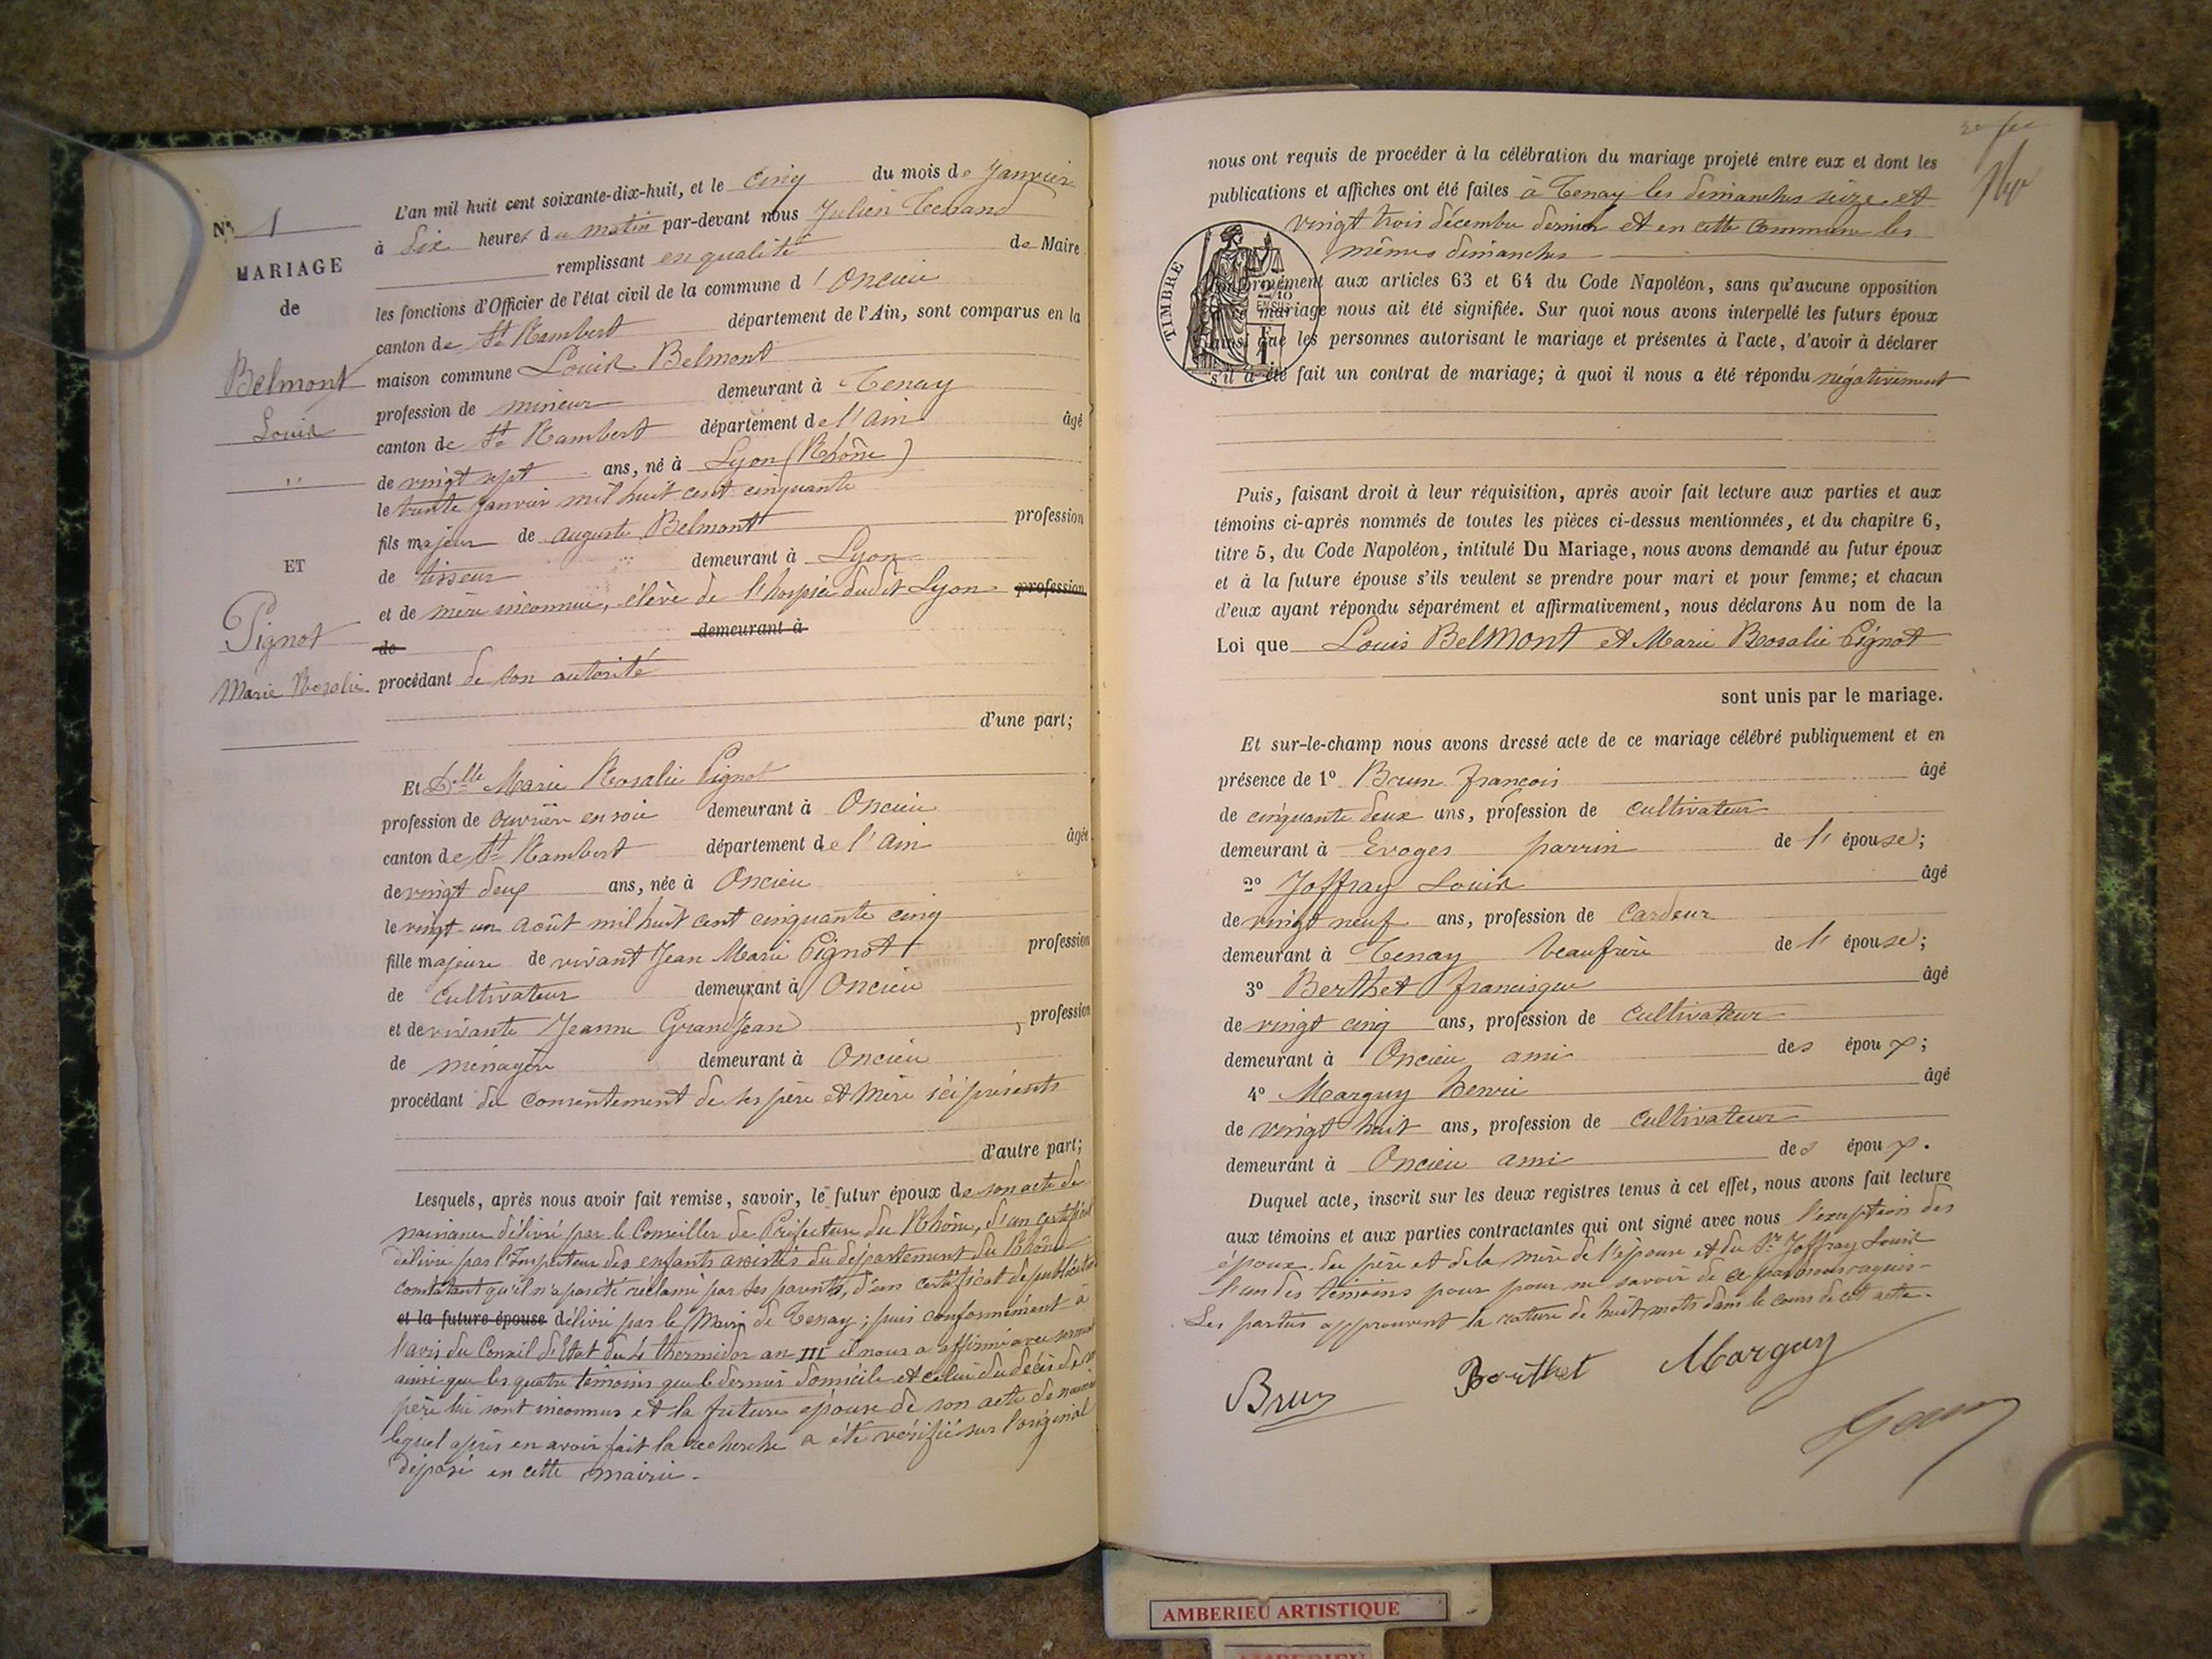 N° 1
MARIAGE
de
Belmont
Louis
"
ET
Pignot
Marie Rosalie
L'an mil huit cent soixante-dix-huit, et le cinq du mois de Janvier
à dix heures du matin par-devant nous Julien
remplissant en qualité de Maire
les fonctions d'Officier de l'état civil de la commune d'Oncieu
canton de St Rambert département de l'Ain, sont comparus en la
maison commune Louis Belmont
profession de mineur demeurant à Tenay
canton de St Rambert département de l'Ain âgé
de vingt sept ans, né à Lyon (Rhône)
le trente Janvier mil huit cent cinquante
fils majeur de Auguste Belmont profession
de tisseur demeurant à Lyon
et de mère inconnue, élève de l'hospice dudit Lyon profession
de demeurant à
procédant de son autorité
d'une part;
Et Delle Marie Rosalie Pignot
profession de ouvrière en soie demeurant à Oncieu
canton de St Rambert département de l'Ain âgée
de vingt deux ans, née à Oncieu
le vingt-un Août mil huit cent cinquante cinq
fille majeure de vivant Jean Marie Pignot profession
de cultivateur demeurant à Oncieu
et de vivante Jeanne GrandJean, profession
de ménagère demeurant à Oncieu
procédant du consentement de ses père et mère ici présents
d'autre part;
Lesquels, après nous avoir fait remise, savoir, le futur époux de son acte de
naissance délivré par le Conseiller de Préfecture du Rhône, d'un certificat
délivré par l'Inspecteur des enfants assistés du département du Rhône
constatant qu'il n'a pas été réclamé par ses parents, d'un certificat de publication
et la future épouse délivré par le Maire de Tenay; puis conformément à
l'avis du Conseil d'Etat du 4 thermidor an III il nous a affirmé avec serment
ainsi que les quatre témoins que le dernier domicile et celui du décès de son
père lui sont inconnus et la future épouse de son acte de naissance
lequel après en avoir fait la recherche a été vérifié sur l'original
déposé en cette mairie.
nous ont requis de procéder à la célébration du mariage projeté entre eux et dont les
publications et affiches ont été faites à Tenay les dimanches seize et
vingt trois décembre dernier et en cette commune les
mêmes dimanches
TIMBRE
2/10
EN SUS
conformément aux articles 63 et 64 du Code Napoléon, sans qu'aucune opposition
mariage nous ait été signifiée. Sur quoi nous avons interpellé les futurs époux
ainsi que les personnes autorisant le mariage et présentes à l'acte, d'avoir à déclarer
s'il a été fait un contrat de mariage; à quoi il nous a été répondu négativement
Puis, faisant droit à leur réquisition, après avoir fait lecture aux parties et aux
témoins ci-après nommés de toutes les pièces ci-dessus mentionnées, et du chapitre 6,
titre 5, du Code Napoléon, intitulé Du Mariage, nous avons demandé au futur époux
et à la future épouse s'ils veulent se prendre pour mari et pour femme; et chacun
d'eux ayant répondu séparément et affirmativement, nous déclarons Au nom de la
Loi que Louis Belmont et Marie Rosalie Pignot
sont unis par le mariage.
Et sur-le-champ nous avons dressé acte de ce mariage célébré publiquement et en
présence de 1° Brun françois âgé
de cinquante deux ans, profession de cultivateur
demeurant à Evoges parrin de l'épouse;
2° Joffray Louis âgé
de vingt neuf ans, profession de Cardeur
demeurant à Tenay beaufrère de l'épouse;
3° Berthet francisque âgé
de vingt cinq ans, profession de cultivateur
demeurant à Oncieu ami des époux;
4° Marguy henri âgé
de vingt huit ans, profession de cultivateur
demeurant à Oncieu ami des époux.
Duquel acte, inscrit sur les deux registres tenus à cet effet, nous avons fait lecture
aux témoins et aux parties contractantes qui ont signé avec nous l'exception des
époux, du père et de la mère de l'épouse et du Sr Joffray Louis
l'un des témoins pour ne savoir de ce par nous requis.
Les parties approuvent la rature de huit mots dans le cours de cet acte.
Brun Berthet Marguy
AMBERIEU ARTISTIQUE
AMBERIEU